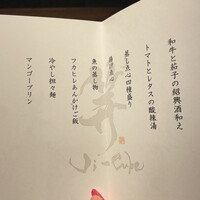 和牛と茄子の紹興酒和え
トマトとレタスの酸辣湯
蒸し点心四種盛り
魚の蒸し物
フカヒレあんかけご飯
冷やし担々麺
マンゴープリン